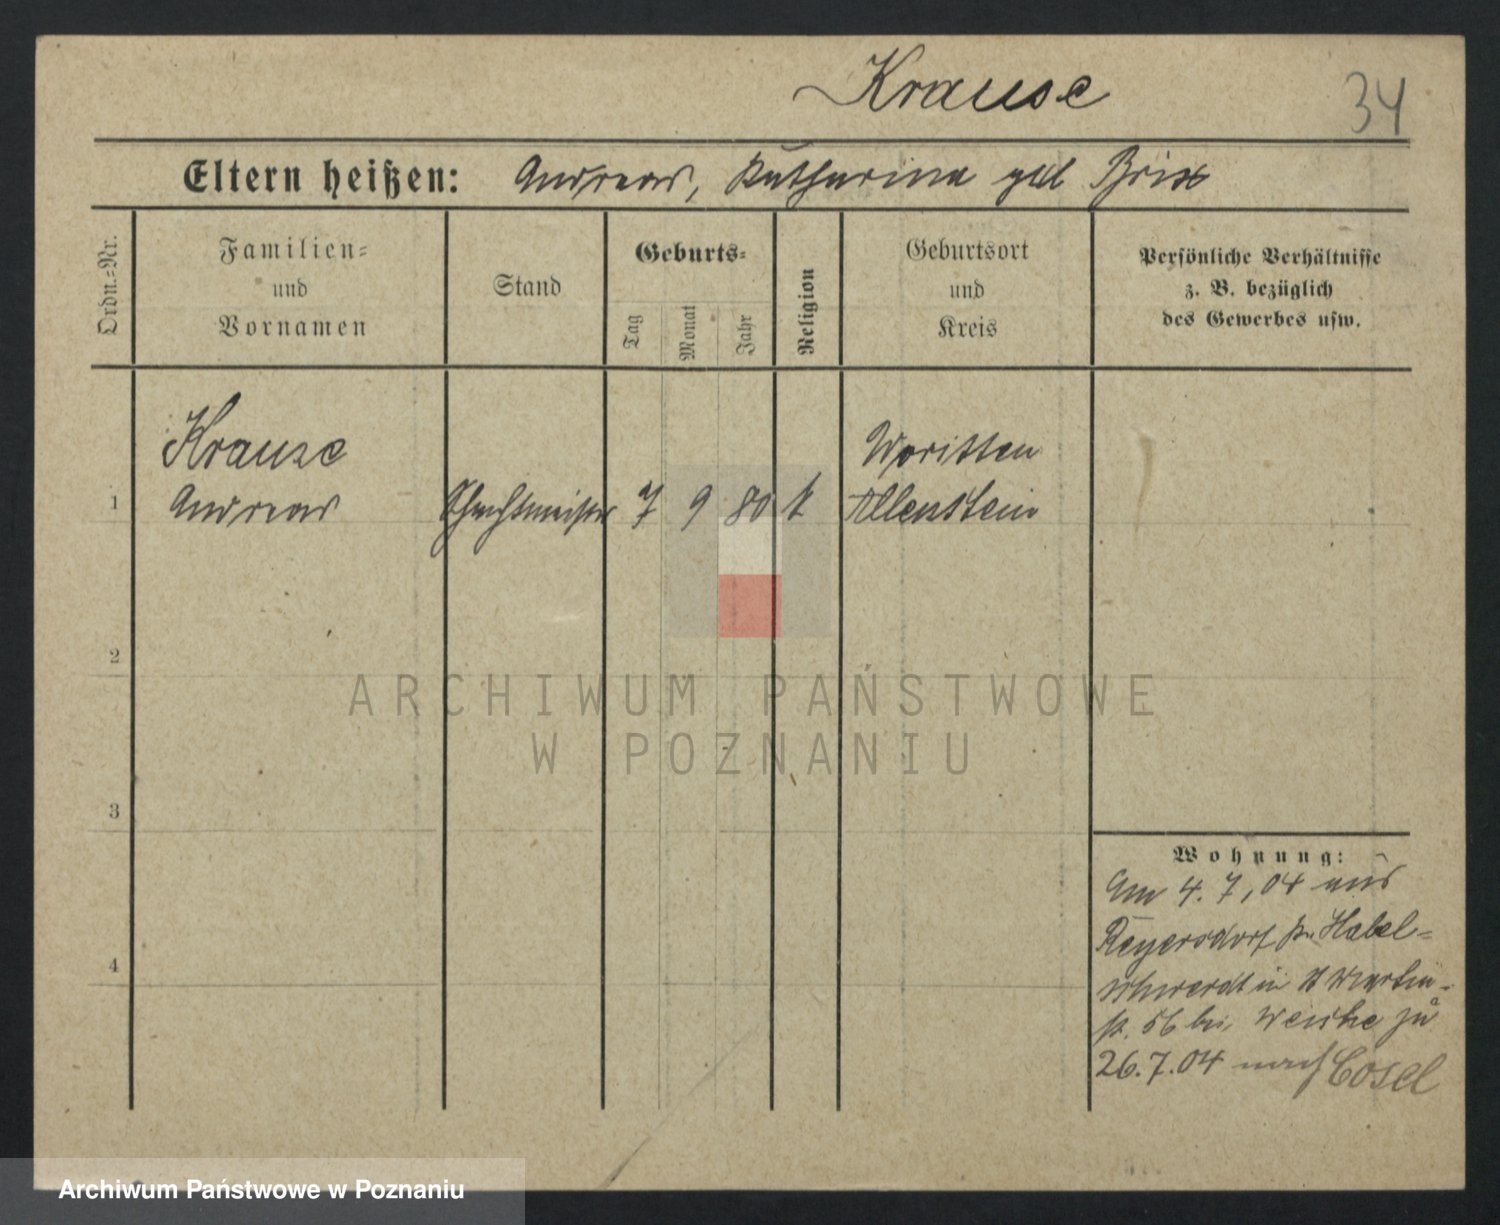 Krause
34
Eltern heißen: Andreas, Katharina geb Briss
Ordn.=Nr.
Familien=
und
Vornamen
Stand
Geburts=
Tag
Monat
Jahr
Religion
Geburtsort
und
Kreis
Persönliche Verhältnisse
z. B. bezüglich
des Gewerbes usw.
Krause
Woritten
1 Andreas Schachtmeister 7 9 80 k Allenstein
2
3
4
Wohnung:
Am 4. 7, 04 aus
Reyersdorf Kr. Habel=
schwerdt in St Martin=
str. 56 bei Weiske zu
26.7.04 nach Cosel
ARCHIWUM PAŃSTWOWE
W POZNANIU
Archiwum Państwowe w Poznaniu